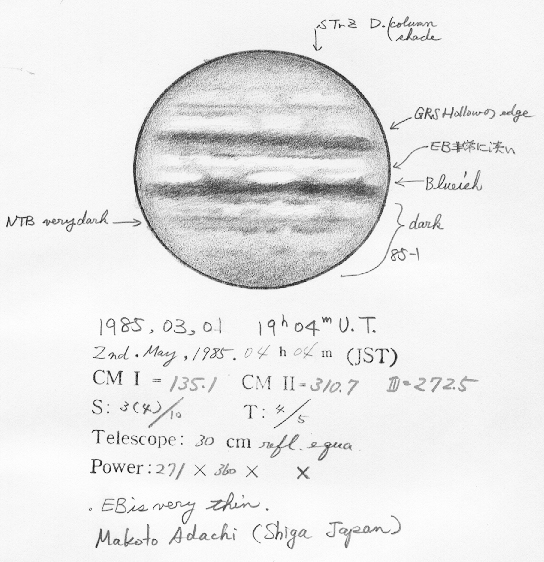 STrZ D. column
shade
GRS Hollow os edge
EB非常に淡い
Blueish
NTB very dark
dark
85-1
1985, 03, 01 19h 04m U.T.
2nd. May, 1985. 04 h 04 m (JST)
CM I = 135.1 CM II = 310.7 III = 272.5
S: 3(4)/10 T: 4/5
Telescope: 30 cm refl. equa
Power: 271 × 360 × ×
. EB is very thin.
Makoto Adachi (Shiga Japan)